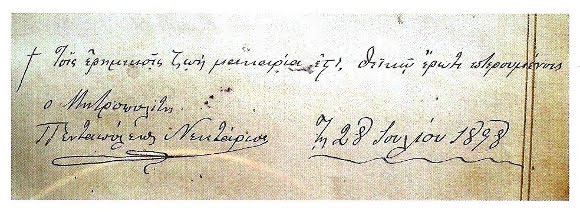 † Τοῖς ἐρημικοῖς ζωὴ μακαρία ἐστί, θεϊκῷ ἔρωτι πτερουμένοις
ὁ Μητροπολίτης
Πενταπόλεως Νεκτάριος Τῇ 28 Ἰουλίου 1898